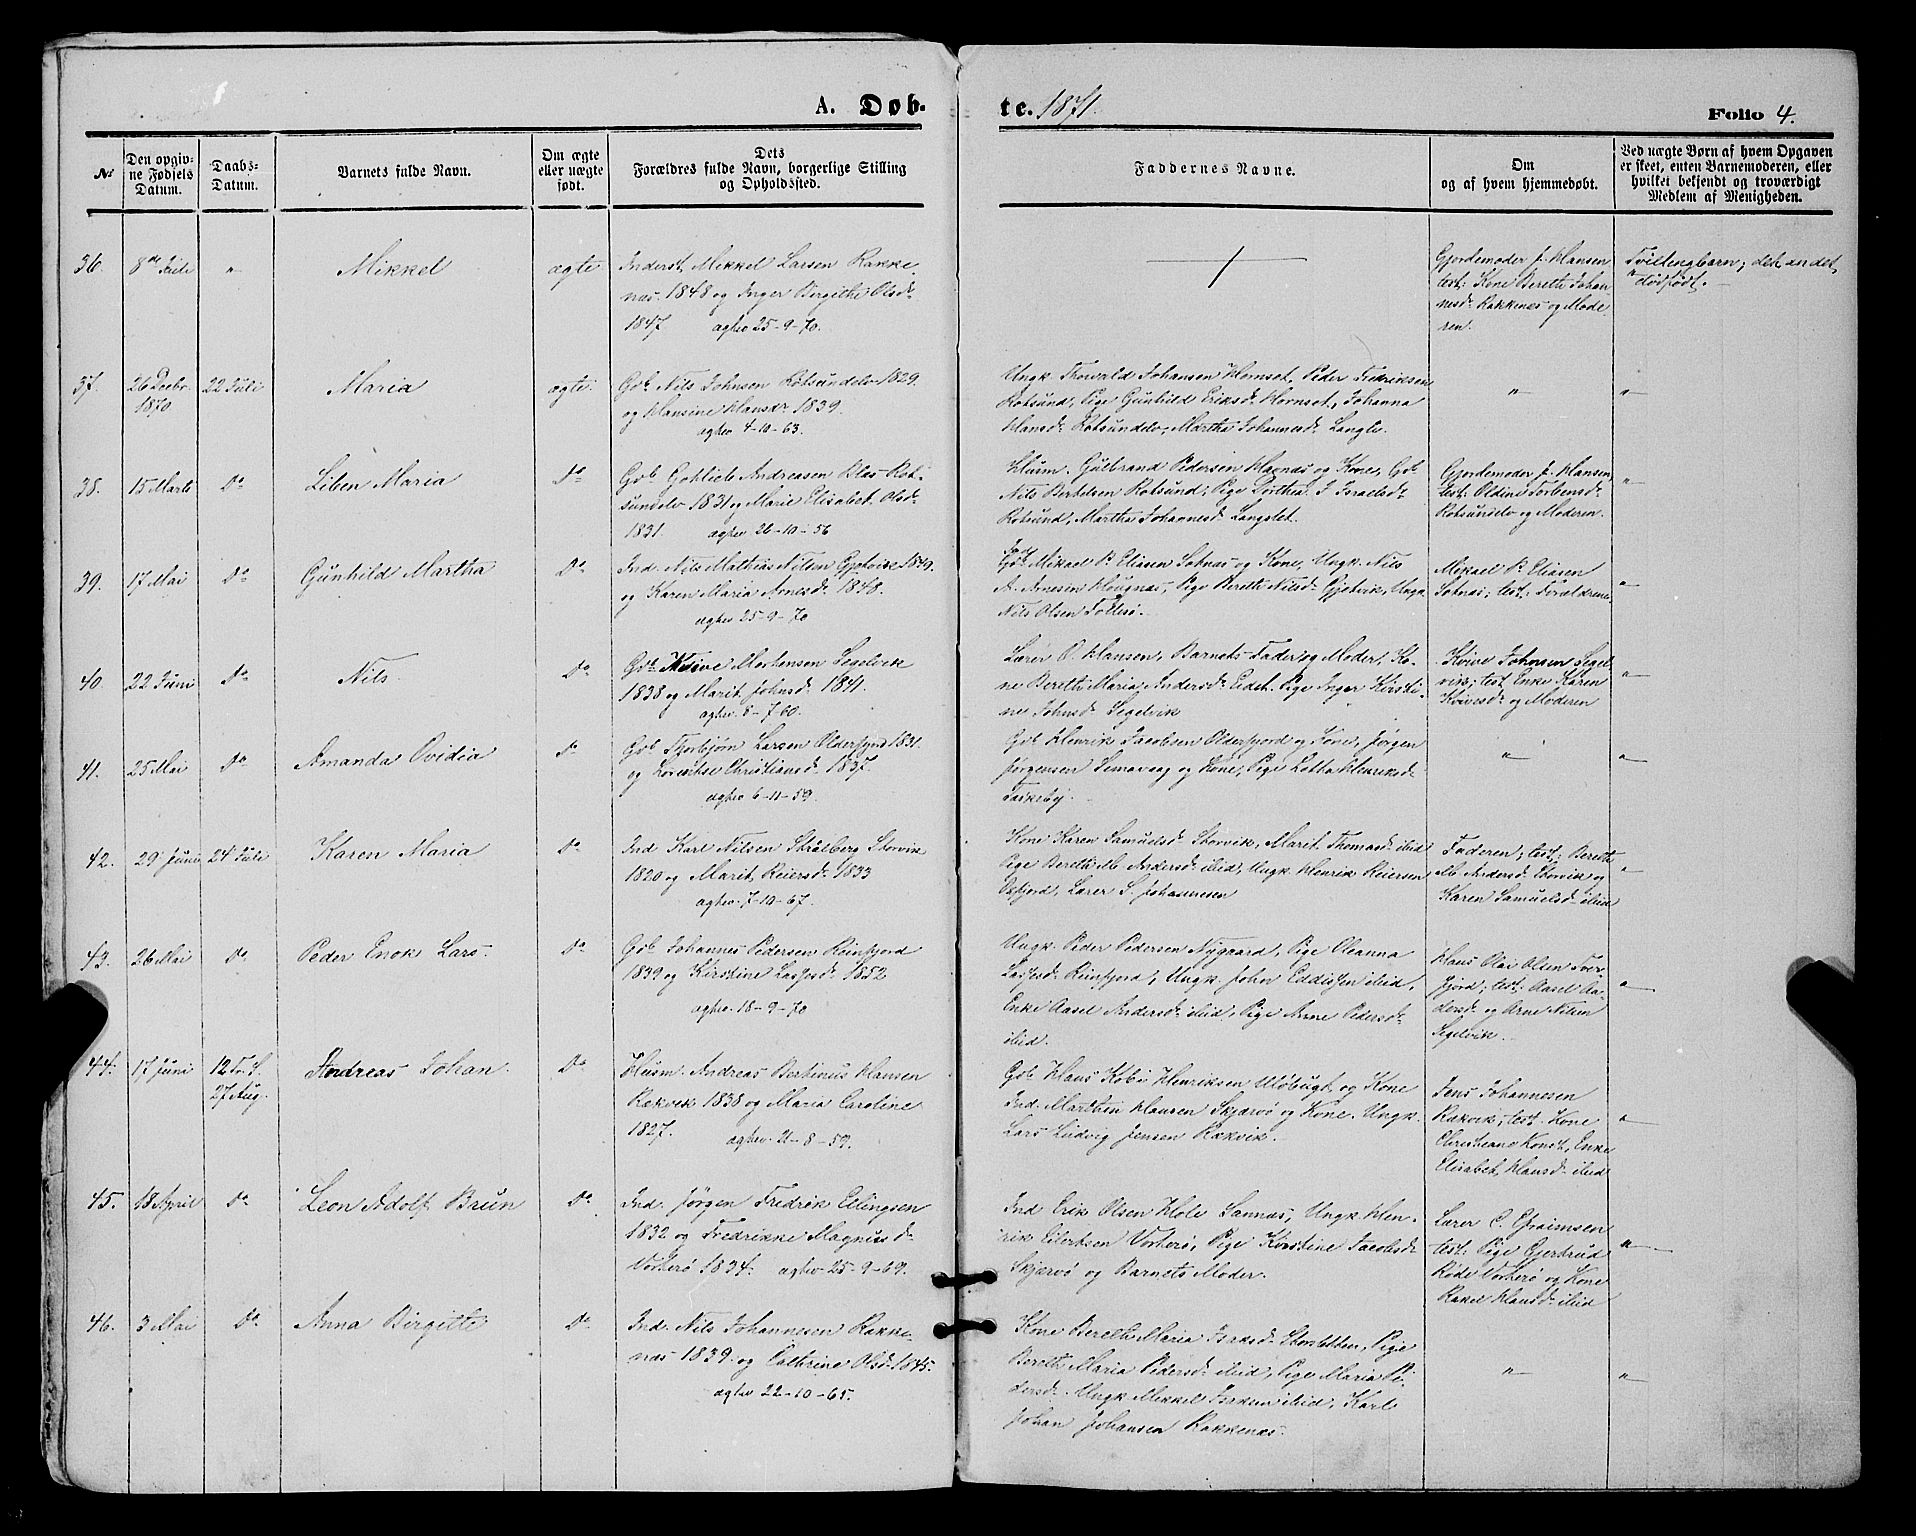 A. Døb-
te. 1871.
Folio 4.
No
Den opgiv-
ne Fødsels
Datum.
Daabs-
Datum.
Barnets fulde Navn.
Om ægte
eller uægte
født.
Dets
Forældres fulde Navn, borgerlige Stilling
og Opholdssted.
Faddernes Navne.
Om
og af hvem hjemmedøbt.
Ved uægte Børn af hvem Opgaven
er skeet, enten Barnemoderen, eller
hvilket bekjendt og troværdigt
Medlem af Menigheden.
36. 8de Juli " Mikkel ægte
Inderst Mikkel Larsen Rakke-
næs 1848 og Inger Birgithe Olsdr
1847 ægtev 25-9-70.
Gjordemoder J. Hansen
test: Kone Bereth Johan
nesdr Rakkenæs og Mode
ren.
Tvillengbarn; det andet
dødfødt.
37. 26 Decbr
1870
22 Juli Maria ægte
Gbr Nils Johnsen Rotsundelv 1829.
og Hansine Hansdr 1839.
ægtev 4-10-63.
Ungk. Thorvald Johansen Hornset, Peder Fredriksen
Rotsund, Pige Gunhild Eriksdr Hornset, Johanna
Hansdr Rotsundelv, Martha Johannesdr Langsle.
" "
38. 15 Marts Do Liben Maria Do
Gbr Gotlieb Andreasen Blæs Rot-
sundelv 1831 og Marie Elisabet Olsdr
1831. ægtev 26-10-56
Husm. Gulbrand Pedersen Hagnæs og Kone, Gbr
Nils Bertelsen Rotsund; Pige Dorthea J Israelsdr
Rotsund, Martha Johannesdr Langslet.
Gjordemoder J. Hansen,
test: Oldine Torbensdr
Rotsundelv og Moderen.
"
39. 17 Mai Do Gunhild Martha Do
Ind. Nils Mathias Nilsen Gjøvik 1849.
og Karen Maria Arnesdr 1848.
ægtev 25-9-70
Gbr Mikael P. Eliasen Sotnæs og Kone, Ungk. Nils
A. Arnesen Haugnæs, Pige Bereth Nilsdr Gjøvik, Ungk.
Nils Olsen Follesø.
Mikael P. Eliasen
Sotnæs; test: Forældrene
"
40. 22 Juni Do Nils Do
Gbr Koive Mortensen Segelvik
1838 og Marit Johnsdr 1841.
ægtev 8-7-60.
Lærer O. Hansen, Barnets Fader og Moder, Ko-
ne Bereth Maria Andersdr Eidet. Pige Inger Kirsti-
ne Johnsdr Segelvik
Koive Johnsen Segel
vik; test Enke Karen
Koivesdr og Moderen
"
41. 25 Mai Do Amanda Ovidia Do
Gbr Thorbjørn Larsen Olderfjord 1831.
og Lorentse Christiansdr 1837.
ægtev 6-11-59.
Gbr Henrik Jacobsen Olderfjord og Kone, Jørgen
Jørgensen Simavaag og Kone, Pige Lotta Henriksdr
Taskeby.
" "
42. 29 Juni 24 Juli Karen Maria Do
Ind Karl Nilsen Strålberg Storvik
1820 og Marit Reiersdr 1833
ægtev. 7-10-67.
Kone Karen Samuelsdr Storvik, Marit Thomasdr ibid
Pige Bereth Mb Andersdr ibid, Ungk. Henrik Reiersen
Oxfjord, Lærer S. Johannesen
Faderen; test: Bereth
Mb Andersdr Storvik og
Karen Samuelsdr ibid
"
43. 26 Mai Do Peder Enok Lars. Do
Gbr Johannes Pedersen Reinfjord
1839 og Kirstine Lassesdr 1852
ægtev. 18-9-70
Ungk. Peder Pedersen Nygaard, Pige Oleanna
Lassesdr Reinfjord, Ungk. John Eddissen ibid,
Enke Aasel Andersdr ibid, Pige Anne Pedersdr
ibid.
Hans Olai Olsen Tver-
fjord; test: Aasel An-
dersdr og Arne Nilsen
Segelvik.
"
44. 17 Juni 12 Tr. S.
27 Aug.
Andreas Johan. Do
Husm. Andreas Bertinus Hansen
Rækvik 1838 og Maria Caroline
1827. ægtev. 21-8-59.
Gbr Hans Kobi Henriksen Uløbugt og Kone
Ind. Marthin Hansen Skjærvø og Kone. Ungk.
Lars Ludvig Jensen Rækvik.
Jens Johannesen
Rækvik; test. Kone
Christiane Konst, Enke
Elisabet Hansdr ibid
"
45. 18 April Do Leon Adolf Brun Do
Ind. Jørgen Fredrik Ellingsen
1832 og Fredrikke Magnusdr
Vorterø 1834. ægtev 25-9-69.
Ind Erik Olsen Hole Sannæs, Ungk. Hen-
rik Eilertsen Vorterø, Pige Kirstine Jacobsdr
Skjærvø og Barnets Moder.
Lærer C. Efraimsen
test: Pige Gjertrud
Røde Vorterø og Kone
Rakel Hansdr ibid
"
46. 3 Mai Do Anna Birgitte Do
Ind. Nils Johannesen Rakke-
næs 1839. og Cathrine Olsdr 1845.
ægtev 22-10-65.
Kone Bereth Maria Isaksdr Storsletten, Pige
Bereth Maria Pedersdr ibid, Pige Maria Pe-
dersdr. Ungk Mikkel Isaksen ibid, Karl
Johan Johansen Rakkenæs.
" "